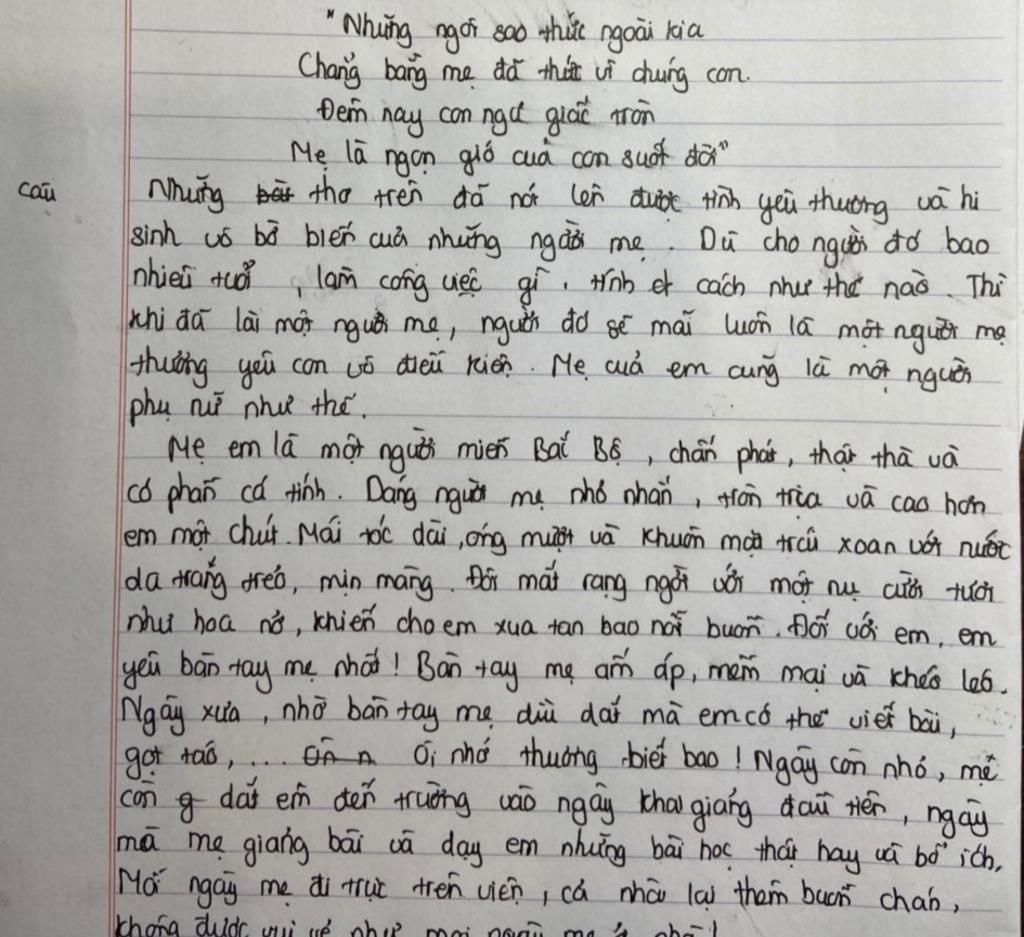 "Những ngôi sao thức ngoài kia
Chẳng bằng mẹ đã thức vì chúng con.
Đêm nay con ngủ giấc tròn
Mẹ là ngọn gió của con suốt đời"
câu
Những bài thơ trên đã nói lên được tình yêu thương và hi
sinh vô bờ biến của những người mẹ. Dù cho người đó bao
nhiêu tuổi, làm công việc gì, tính cách như thế nào. Thì
khi đã lài một người mẹ, người đó sẽ mãi luôn là một người mẹ
thương yêu con vô điều kiện. Mẹ của em cũng là một người
phụ nữ như thế.
Mẹ em là một người miền Bắc Bộ, chân phát, thật thà và
có phần cá tính. Dáng người mẹ nhỏ nhắn, tròn trịa và cao hơn
em một chút. Mái tóc dài, óng mượt và khuôn mặt trái xoan với nước
da trắng trẻo, mịn màng. Đôi mắt rạng ngời với một nụ cười tươi
như hoa nở, khiến cho em xua tan bao nỗi buồn. Đối với em, em
yêu bàn tay mẹ nhất! Bàn tay mẹ ấm áp, mềm mại và khéo léo.
Ngày xưa, nhờ bàn tay mẹ dìu dắt mà em có thể viết bài,
gọt táo, ... Ôi nhớ thương biết bao! Ngày còn nhỏ, mẹ
còn dắt em đến trường vào ngày khai giảng đầu tiên, ngày
mà mẹ giảng bài và dạy em những bài học thật hay và bổ ích.
Mỗi ngày mẹ đi trực trên viện, cả nhà lại thêm buồn chán,
không được vui vẻ như mọi ngày mẹ ở nhà!